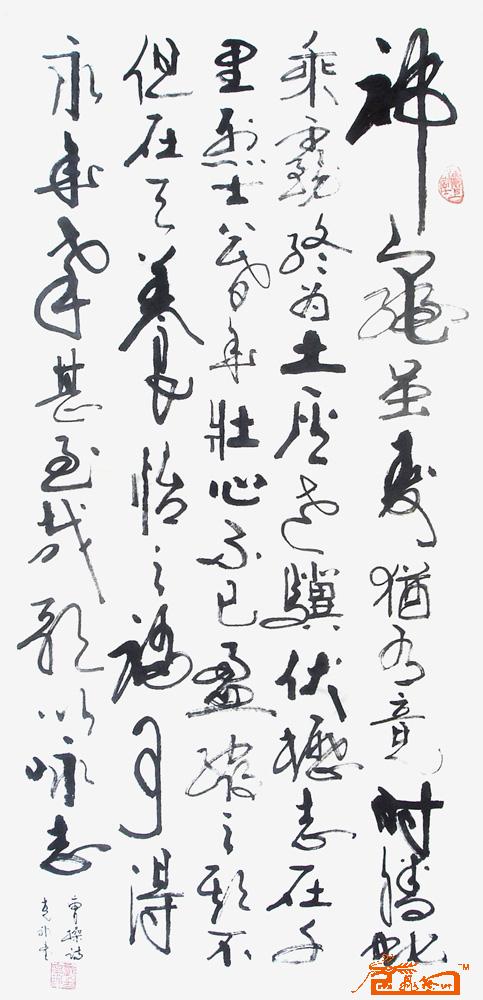 神龜虽壽猶有竟時騰蛇
乘霧終为土灰老驥伏櫪志在千
里烈士暮年壯心不已盈縮之期不
但在天養怡之福可得
永年幸甚至哉歌以咏志
曹操詩